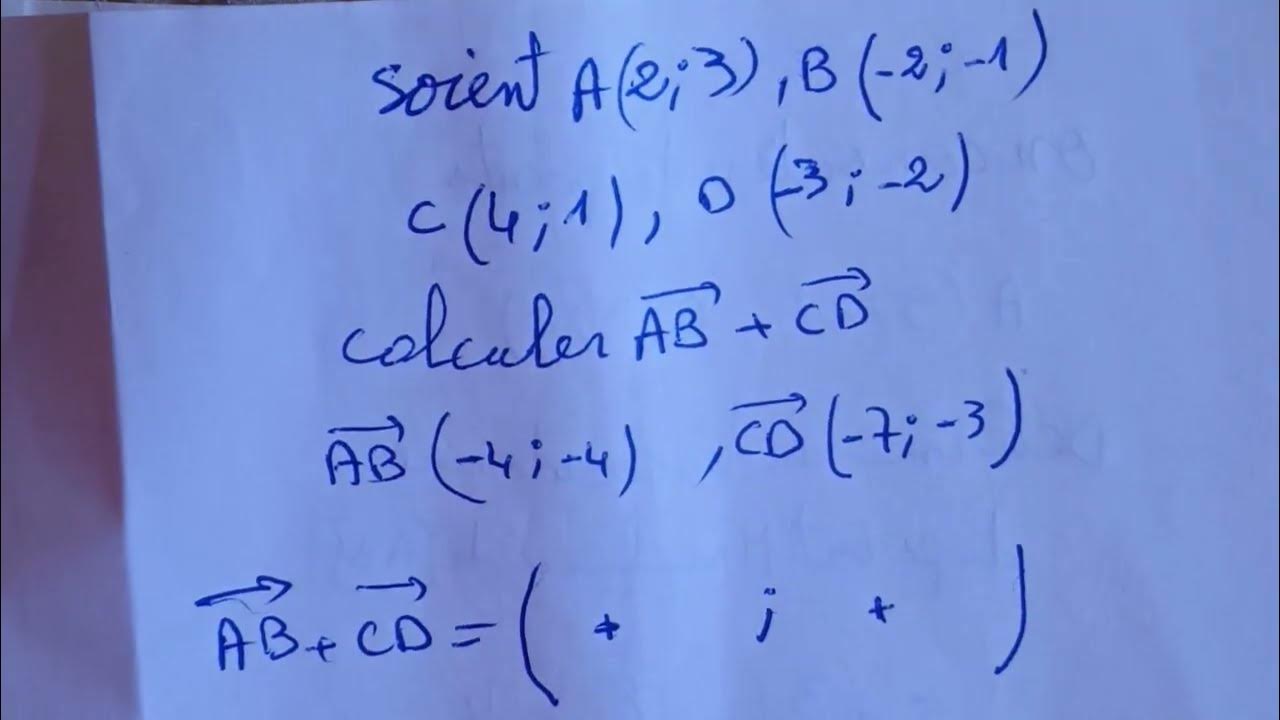 soient A(2;3), B(-2;-1)
C(4;1), D(-3;-2)
calculer AB + CD
AB(-4;-4), CD(-7;-3)
AB + CD = ( + ; + )